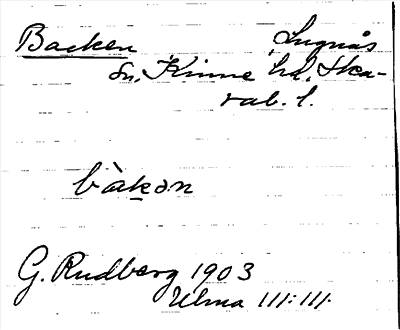 Backen Lugnås
sn. Kinne hd. Ska-
rab. l.
bàkən
G. Rudberg 1903
Ulma 111:111.